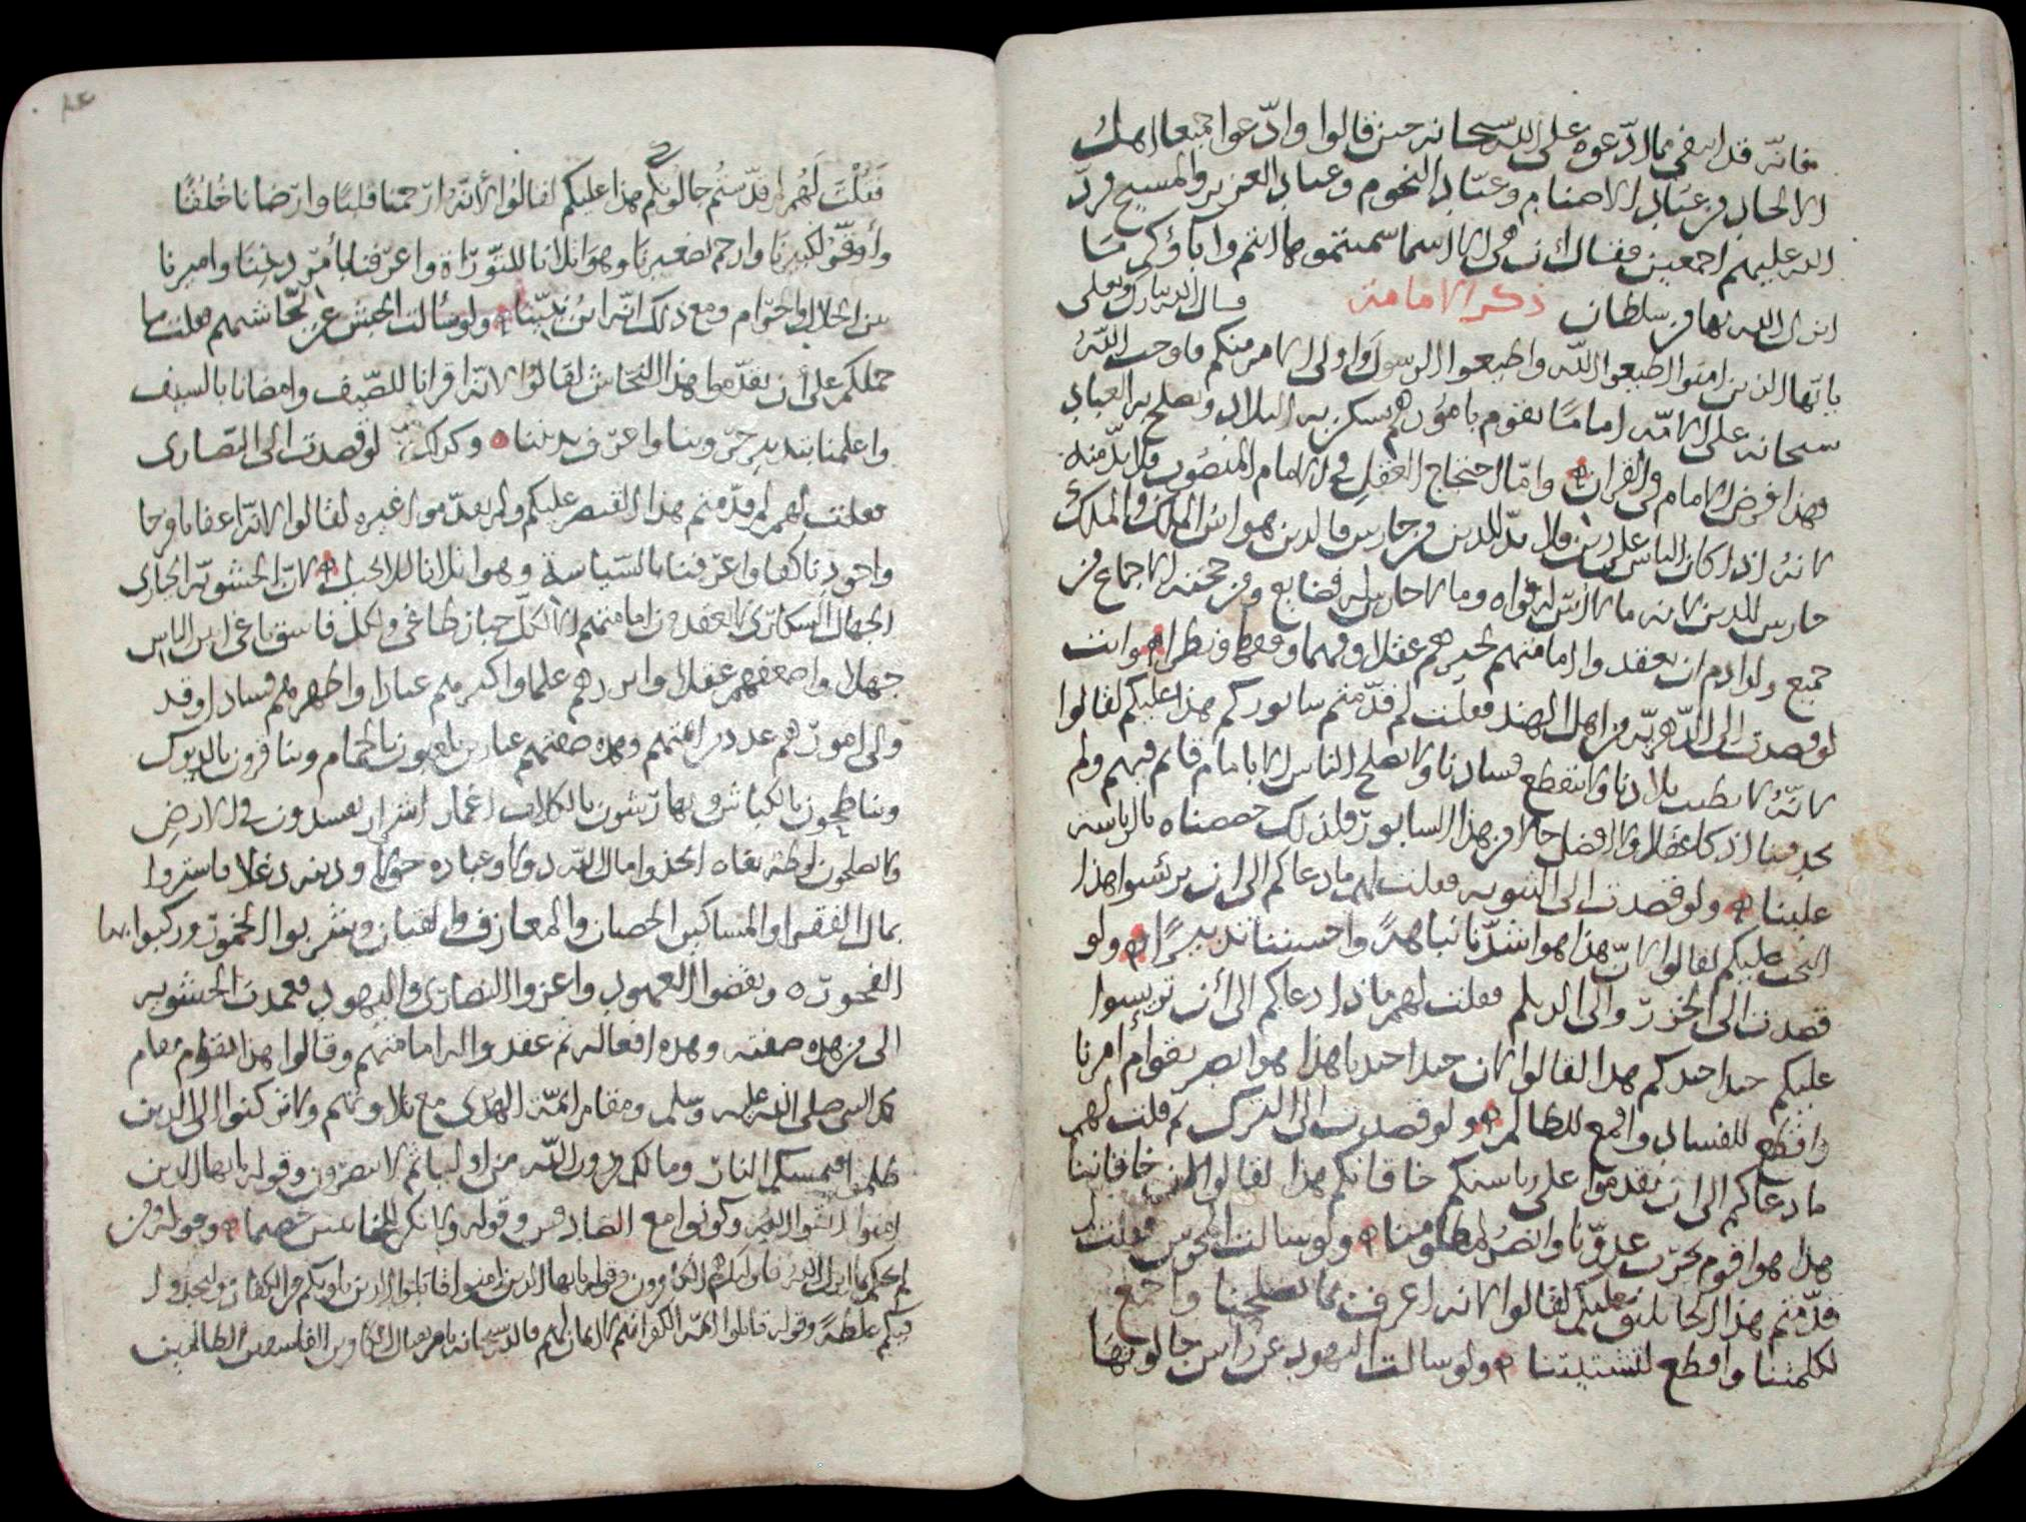 فانه قد انتفى مما ادّعوه على الله سبحانه حين قالوا وادّعوا جميعا اهل
الالحاد من عباد الاصنام وعبّاد النجوم وعباد العزير والمسيح فردّ
الله عليهم اجمعين فقال ان هى الا اسما سميتموها انتم وآباؤكم ما
انزل الله بها من سلطان ذكر الامامة قال الله تبارك وتعلى
يا ايّها الذين امنوا اطيعوا الله واطيعوا الرسول واولى الامر منكم فاوجب الله
سبحانه على الامّه اماما يقوم بامورهم يسكن به البلاد ويصلح به العباد
فهذا فرض الامام فى القران وامّا احتجاج العقل فى الامام المنصوب فلا بدّ منه
لانه اذا كان الناس على دين فلا بدّ للدين من حارس فالدين هو اس الملك والملك
حارس للدين لانه ما لا اسّ له فواه وما لا حارس له فضايع ومن حجته الاجماع من
جميع ولد ادم ان يعقدوا امامتهم لخيرهم عقلا وفهما وفقها ونظرا وانت
لو قصدت الى الدّهريّه من اهل الهند فقلت لم قدّمتم سابوركم هذا عليكم لقالوا
لانّه لا تطيب بلادنا ولا ينقطع فسادنا ولا يصلح الناس الا بامام قائم فيهم ولم
نجد فينا اذكا عقلا ولا افضل حالا من هذا السابور فلذلك خصصناه بالرياسة
علينا ولو قصدت الى الثنويه فقلت لهم ما دعاكم الى ان ترئسوا هذا
عليكم لقالوا لانّ هذا هو اشدّنا نباهةً واحسننا تدبيرًا ولو
قصدت الى الخزر والى الديلم فقلت لهم ماذا دعاكم الى أن تريسوا
عليكم هذا لقالوا لان هذا هو ابصر بقوام أمرنا
واقطع للفساد واقمع للظالم ولو قصدت الى الترك ثم قلت لهم
ما دعاكم الى ان تقدموا على رياستكم خاقانكم هذا لقالوا لان خاقاننا
هذا هو اقوم بحرب عدوّنا وانصر لمظلومنا ولو سالت المجوس فقلت
قدّمتم هذا عليكم لقالوا لانه اعرف بما يصلحنا واجمع
لكلمتنا واقطع لتشتيتنا ولو سالت اليهود عن راس جالوتها
فَقُلْتَ لَهُم لم قدّمتُم جالوتكم هذا عليكم لقالُوا لأنّهُ ارحمنا قلبًا وارضانا خُلُقًا
وأوقرُ لكبيرنَا وارحم لصغيرنَا وهوَ اتلانا للتّورَاة واعرفنا بأمر دينِنَا واميرنا
بين الحلال والحرام ومع ذلك انّه ابن نبيّنا ولو سألت الحبش عن نجّاشهم فقلت ما
حملكم على أن تقدّموا هذا النجّاش لقالوا لانّه اقرانا للضّيف وامضانا بالسيف
واعلمنا بتدبير حروبنا واعرف بديننا وكذلك لو قصدت الى النّصارى
فقلت لهم لم قدّمتم هذا القيصر عليكم ولم تقدّموا غيره لقالوا لانّه اعفانا فرجا
واجودنا كفا واعرفنا بالسّياسة وهو اتلانا للانجيل لانّ الحشويّه الحيارى
الجهال السكارى لا تعقدون امامتهم الا لكلّ جبار طاغى ولكل فاسق باغى اس الناس
جهلا واضعفهم عقلا وانزرهم علما واكبرهم عنادا واظهرهم فسادا وقد
ولى امورهم عدد من ائمتهم وهذه صفتهم يلعبون بالحمام ويناقرون بالديوك
ويناطحون بالكباش ويهارشون بالكلاب اغمار اشرار يفسدون فى الارض
ولا يصلحون اتخذوا مال الله دولا وعباده خولا ودينه دغلا فاستروا
بمال الفقرا والمساكين الخصيان والمعازف والقيان وشربوا الخمور وركبوا بها
الفجور ونقضوا العهود واعزوا النصارى واليهود فعمدت الحشويه
الى من هذه صفته وهذه افعاله ثم عقدوا له امامتهم وقالوا هذا يقوم مقام
النبى صلى الله عليه وسلم ومقام ائمّة الهدى مع تلاوتهم ولا تركنوا الى الذين
ظلموا فتمسكم النار وما لكم من دون الله من اوليا ثم لا تنصرون وقوله يا ايها الذين
امنوا اتقوا الله وكونوا مع الصادقين وقوله ولا تكن للخائنين خصيما وقوله ومن
لم يحكم بما انزل الله فاولئك هم الكافرون وقوله يا ايها الذين امنوا قاتلوا الذين يلونكم من الكفار وليجدوا
فيكم غلظةً وقوله قاتلوا ائمّة الكفر انهم لا ايمان لهم فالله سبحانه يامر بقتال الفاسقين الظالمين